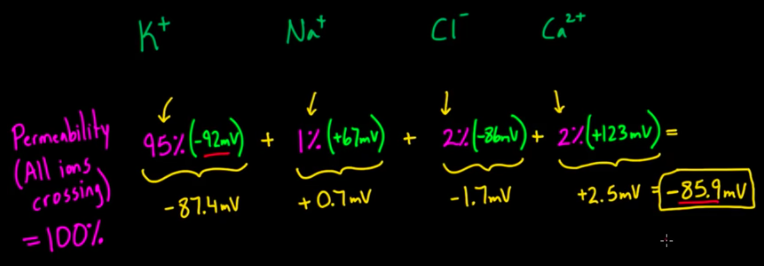 K⁺ Na⁺ Cl⁻ Ca²⁺
Permeability
(All ions
crossing)
= 100%
95% (-92mV) + 1% (+67mV) + 2% (-86mV) + 2% (+123mV) =
-87.4mV +0.7mV -1.7mV +2.5mV = -85.9mV